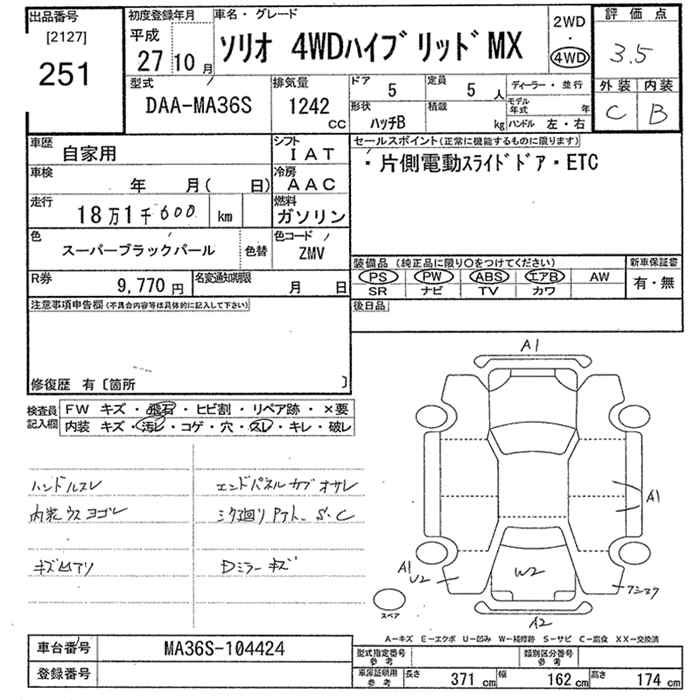 出品番号
[2127]
251
初度登録年月
平成
27 10月
車名・グレード
ソリオ 4WDハイブリッドMX
2WD
・
4WD
評価点
3.5
外装 内装
C B
型式
DAA-MA36S
排気量
1242
CC
ドア
5
定員
5人
形状
ハッチB
積載
kg
ディーラー・並行
モデル年式 年
ハンドル 左・右
車歴
自家用
シフト
IAT
車検
年 月( 日)
冷房
AAC
走行
18万1千600 km
燃料
ガソリン
色
スーパーブラックパール
色替
色コード
ZMV
R券
9,770円
名変通知期限
月 日
セールスポイント(正常に機能するものに限ります)
・片側電動スライドドア・ETC
装備品(純正品に限り○をつけてください)
PS PW ABS エアB AW
SR ナビ TV カワ
新車保証書
有・無
後日品
注意事項申告欄(不具合内容等は具体的に記入して下さい)
修復歴 有〔箇所 〕
検査員記入欄
FW キズ・飛石・ヒビ割・リペア跡・×要
内装 キズ・汚レ・コゲ・穴・スレ・キレ・破レ
ハンドルスレ
内装ウスヨゴレ
キズ凹アリ
エンドパネルカブオサレ
S・C
Dミラーキズ
A1
A1
A1
U2
W2
A2
スペア
A-キズ E-エクボ U-凹み W-補修跡 S-サビ C-腐食 XX-交換済
車台番号
MA36S-104424
登録番号
型式指定番号
参考
類別区分番号
参考
車庫証明用
参考
長さ 371cm
幅 162cm
高さ 174cm